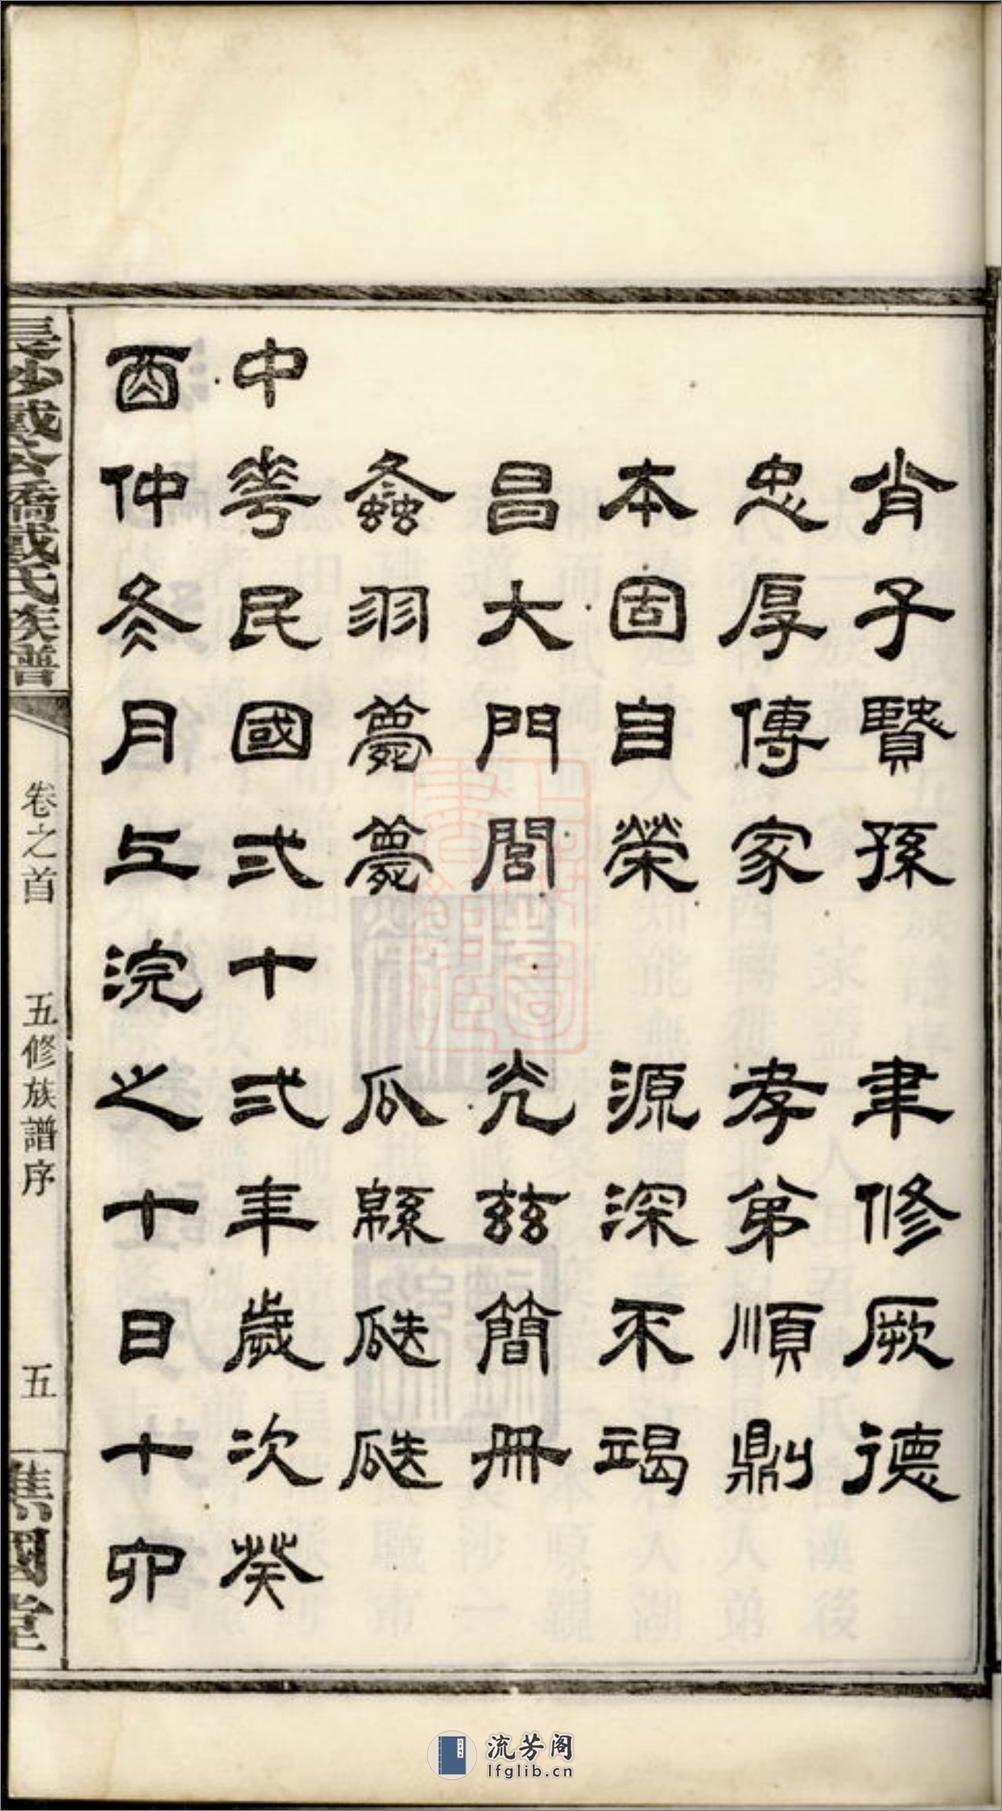 肖子賢孫 聿修厥德
忠厚傳家 孝弟順則
本固自榮 源深不竭
昌大門閭 光茲簡冊
螽羽薨薨 瓜緜瓞瓞
中華民國弍十弍年歲次癸
酉仲冬月上浣之十日十卯
長沙戴公橋戴氏族譜
卷之首 五修族譜序 五
譙國堂
流芳阁
lfglib.cn